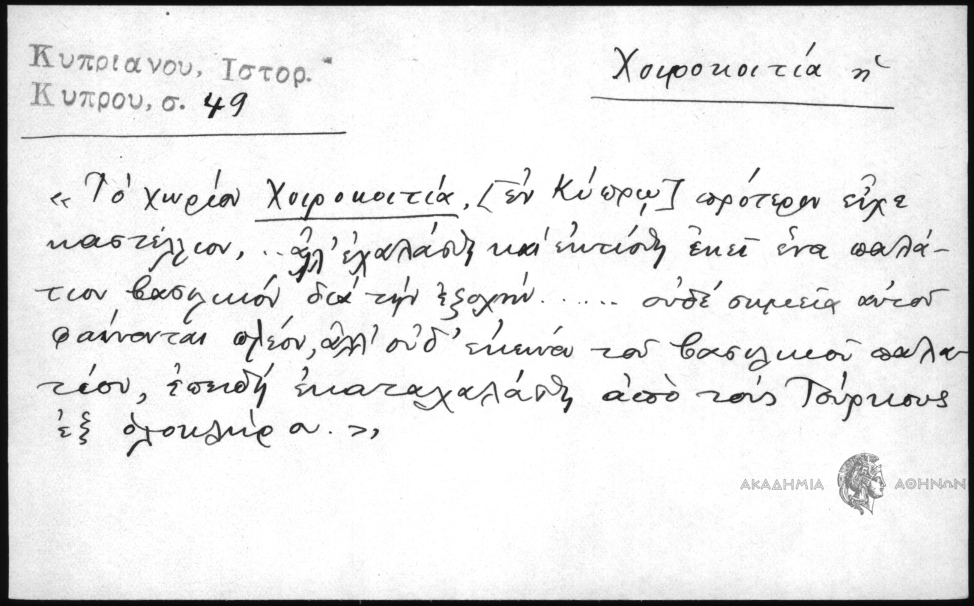 Κυπριανου, Ιστορ.
Κυπρου, σ. 49
Χοιροκοιτία ἡ
« Τὸ χωρίον Χοιροκοιτία, [ἐν Κύπρῳ] πρότερον εἶχε
καστέλλιον, .. ἀλλ' ἐχαλάσθη καὶ ἐκτίσθη ἐκεῖ ἕνα παλά-
τιον βασιλικόν διὰ τὴν ἐξοχήν ...... οὐδέ σημεῖα αὐτοῦ
φαίνονται πλέον, ἀλλ' οὐδ' ἐκεῖνα τοῦ βασιλικοῦ παλα-
τίου, ἐπειδή ἐκαταχαλάσθη ἀπὸ τοὺς Τούρκους
ἐξ ὁλοκλήρου. »,
ΑΚΑΔΗΜΙΑ ΑΘΗΝΩΝ